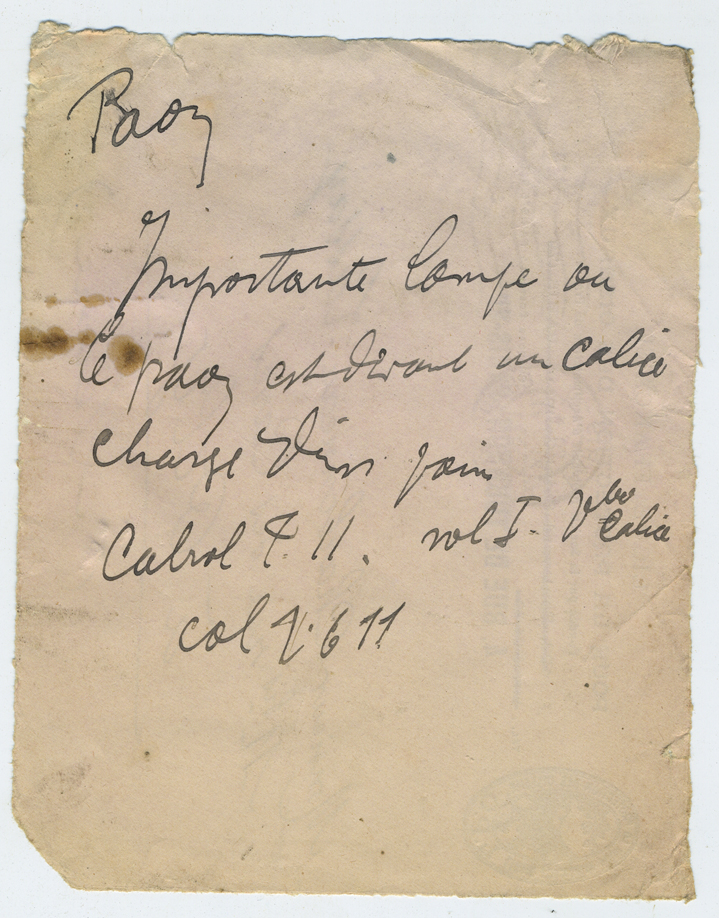 Paon
Importante lampe ou
le paon est devant un calice
chargé d'un pain
Cabrol T. II. vol I. Vbo Calice
col 1611